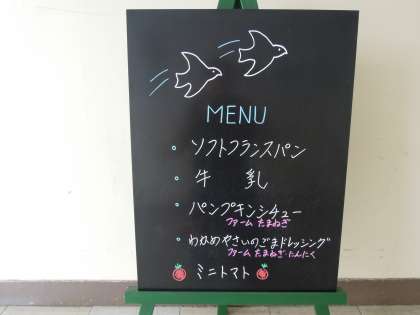 MENU
ソフトフランスパン
牛 乳
パンプキンシチュー
ファーム たまねぎ
わかめやさいのごまドレッシング
ファーム たまねぎ にんにく
ミニトマト